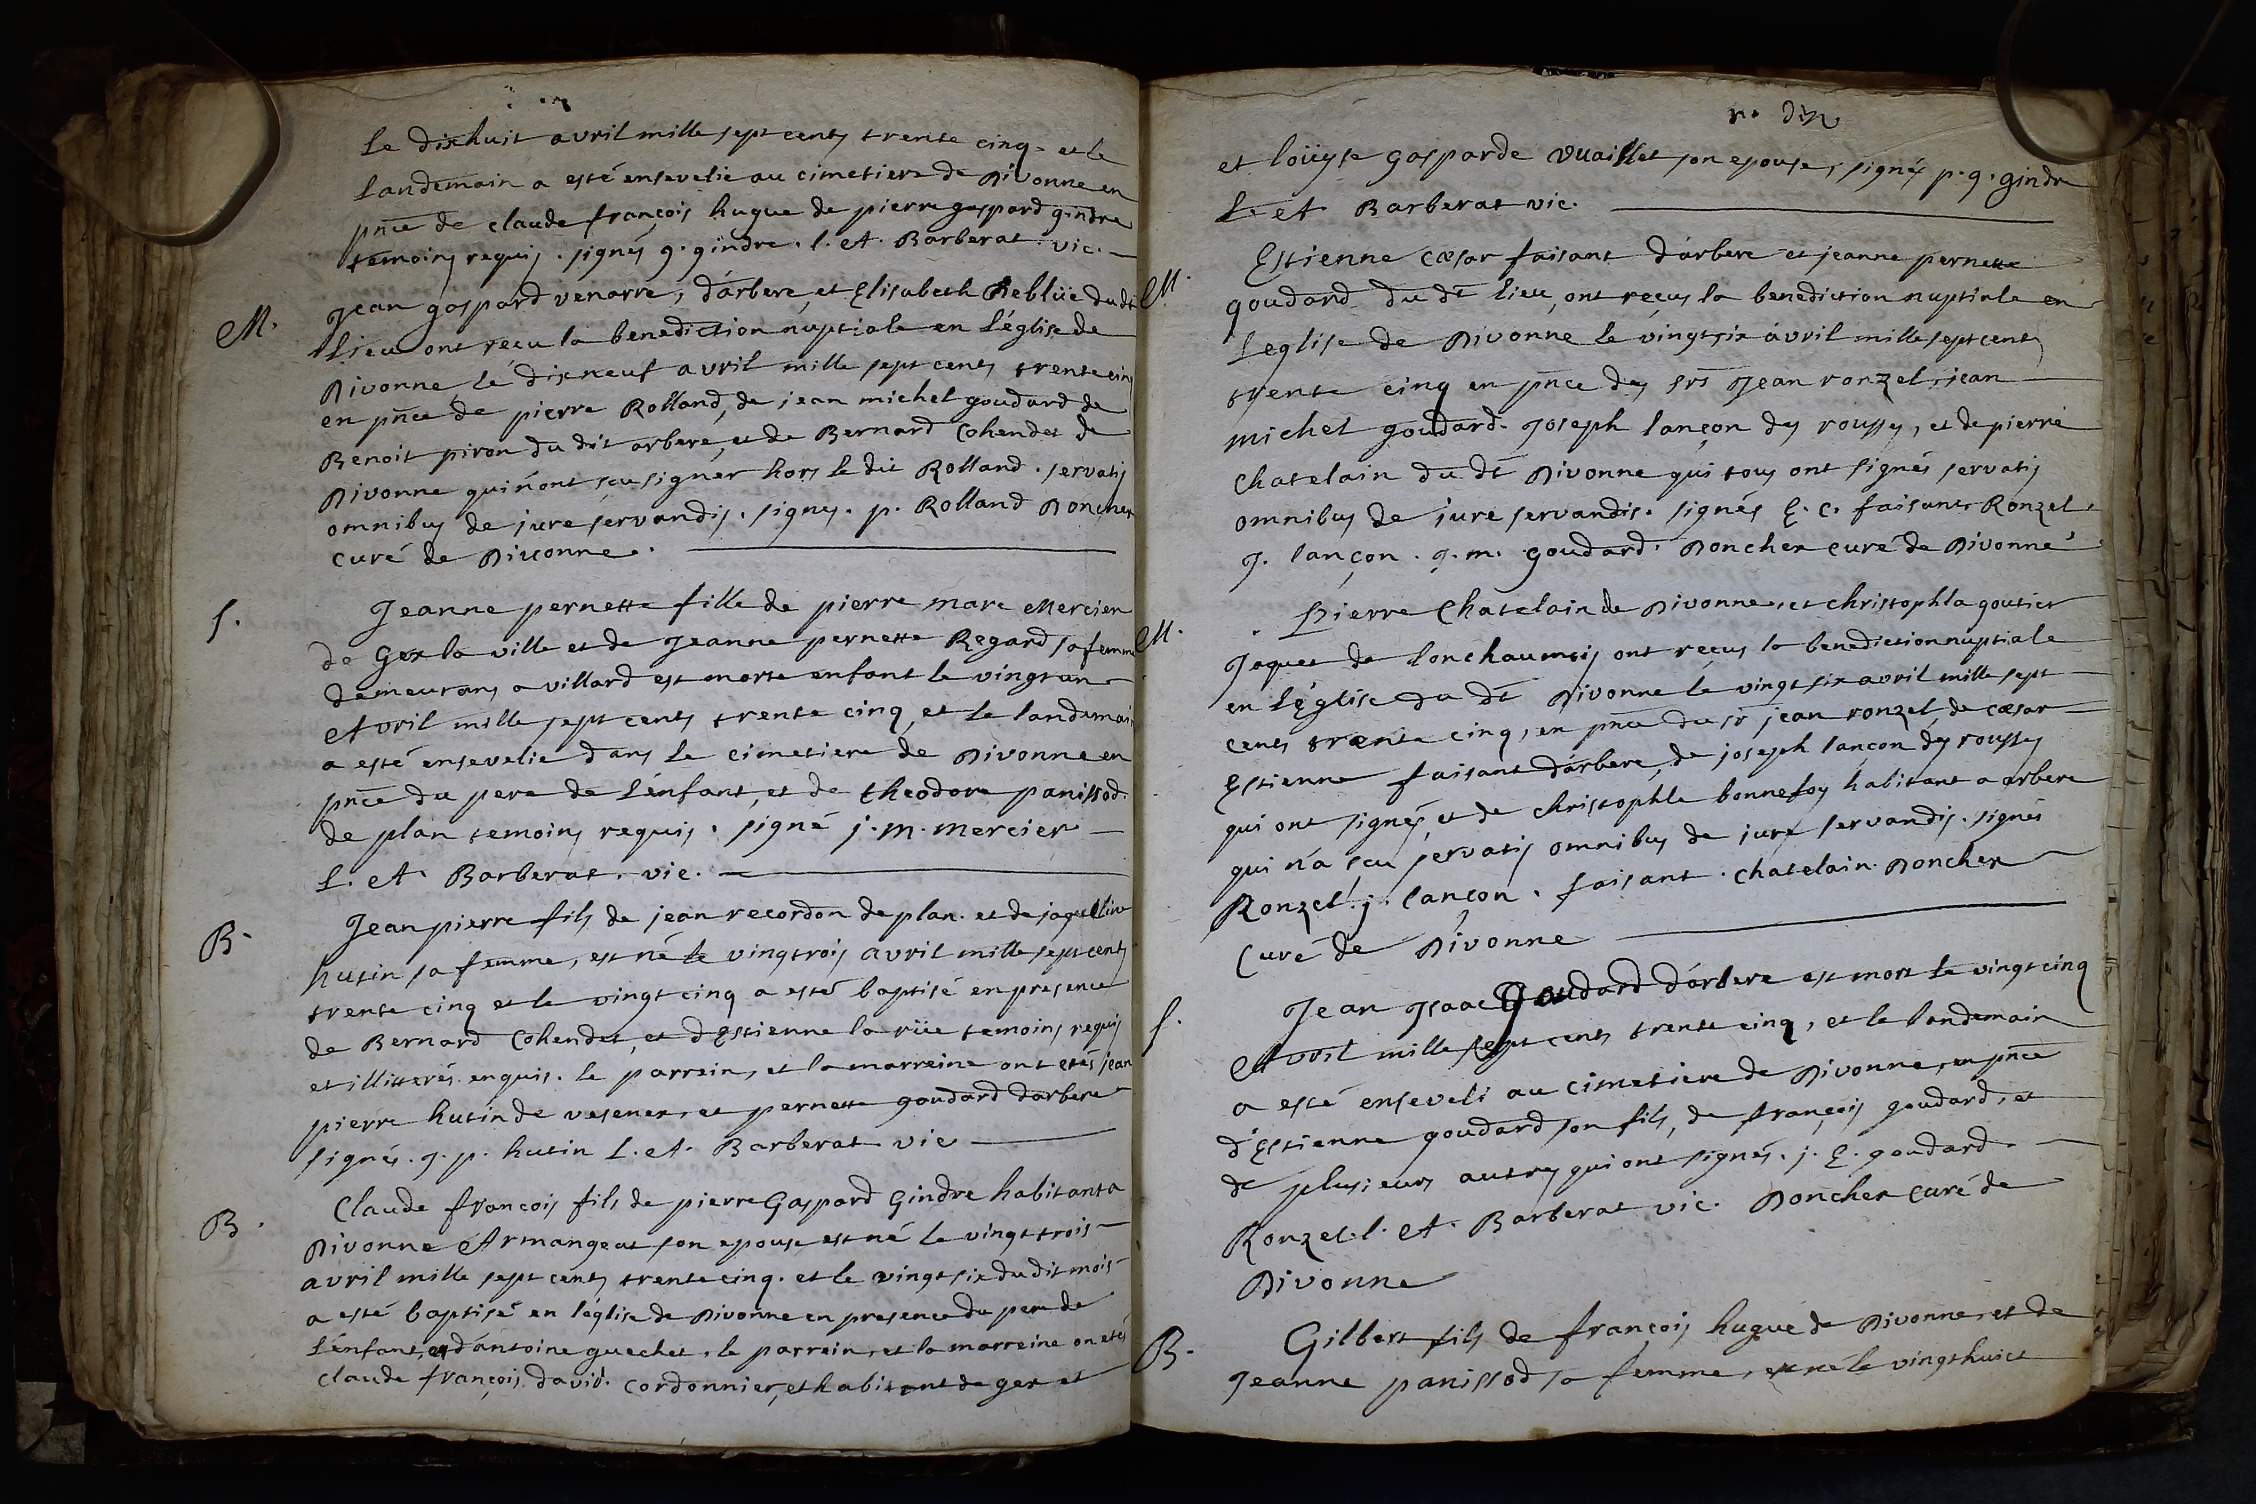 Le dixhuit avril mille sept cents trente cinq. et le
landemain a esté ensevelie au cimetiere de Divonne en
pnce de claude françois hugue de pierre gaspard gindre
temoins requis. signés g. gindre. l. A. Barberat. vic.
M. Jean gaspard venarre, d'arbere, et Elisabeth Deblüe du dt
Lieu ont reçu la benediction nuptiale en L'église de
Divonne le dixneuf avril mille sept cents trente cinq
en pnce de pierre Rolland, de jean michel goudard de
Benoit piron du dit arbere, et de Bernard Cohendet de
Divonne qui n'ont sçu signer hors le dit Rolland. servatis
omnibus de jure servandis. signés. p. Rolland Doncher
curé de Divonne.
s. Jeanne pernette fille de pierre marc Mercier
de Gex la ville et de Jeanne pernette Regard sa femme
demeurans a villard est morte enfant le vingt un
Avril mille sept cents trente cinq, et le landemain
a esté ensevelie dans le cimetiere de Divonne en
pnce du pere de L'énfant, et de theodore panissod
de plan temoins requis. signé j. m. mercier
L. A. Barberat. vic.
B. Jean pierre fils de jean recordon de plan. et de jaqueline
hutin sa femme, est né le vingtrois avril mille sept cents
trente cinq et le vingt cinq a esté baptisé en presence
de Bernard Cohendet, et d'Estienne la rüe temoins requis
et illitterés enquis. le parrein, et la marreine ont etés jean
pierre hutin de vesenex, et pernette goudard d'arbere
signés. j. p. hutin L. A. Barberat vic
B. Claude françois fils de pierre Gaspard Gindre habitant a
Divonne Armangeat son epouse est né le vingt trois
avril mille sept cents trente cinq. et le vingt six du dit mois
a esté baptisé en l'église de Divonne en presence du pere de
L'énfant, et d'antoine guechet. le parrein, et la marreine on etés
claude françois david. cordonnier, et habitant de gex et
n. dix
et loüyse gasparde vuaillet son epouse, signés p. g. gindre
L. A. Barberat vic.
M. Estienne cæsar faisant d'arbere et jeanne pernette
goudard du dt lieu, ont reçus la benediction nuptiale en
L'eglise de Divonne le vingt six avril mille sept cents
trente cinq en pnce des srs Jean ronzel, jean
michel goudard. Joseph lançon des rousses, et de pierre
chatelain du dt Divonne qui tous ont signés servatis
omnibus de jure servandis. signés E. C. faisant Ronzel.
J. lançon. j. m. goudard. Doncher curé de Divonne
M. Pierre Chatelain de Divonne, et christophla goutier
Jaquet de lonchaumois ont reçus la benediction nuptiale
en L'église du dt Divonne le vingt six avril mille sept
cents trente cinq, en pnce du sr jean ronzel, de cæsar
Estienne faisant d'arbere, de joseph lançon des rousses
qui ont signés, et de christophle bonnefoy habitant a arbere
qui n'a sçu servatis omnibus de jure servandis. signés
Ronzel. j. lançon. faisant. chatelain. Doncher
Curé de Divonne
s. Jean Isaac Goudard d'arbere est mort le vingt cinq
Avril mille sept cents trente cinq, et le landemain
a esté enseveli au cimetiere de Divonne, en pnce
d'Estienne goudard son fils, de françois goudard, et
de plusieurs autres qui ont signés. j. E. goudard.
Ronzel. l. A. Barberat vic. Doncher curé de
Divonne
B. Gilbert fils de françois hugue de Divonne, et de
Jeanne panissod sa femme, est né le vingt huict